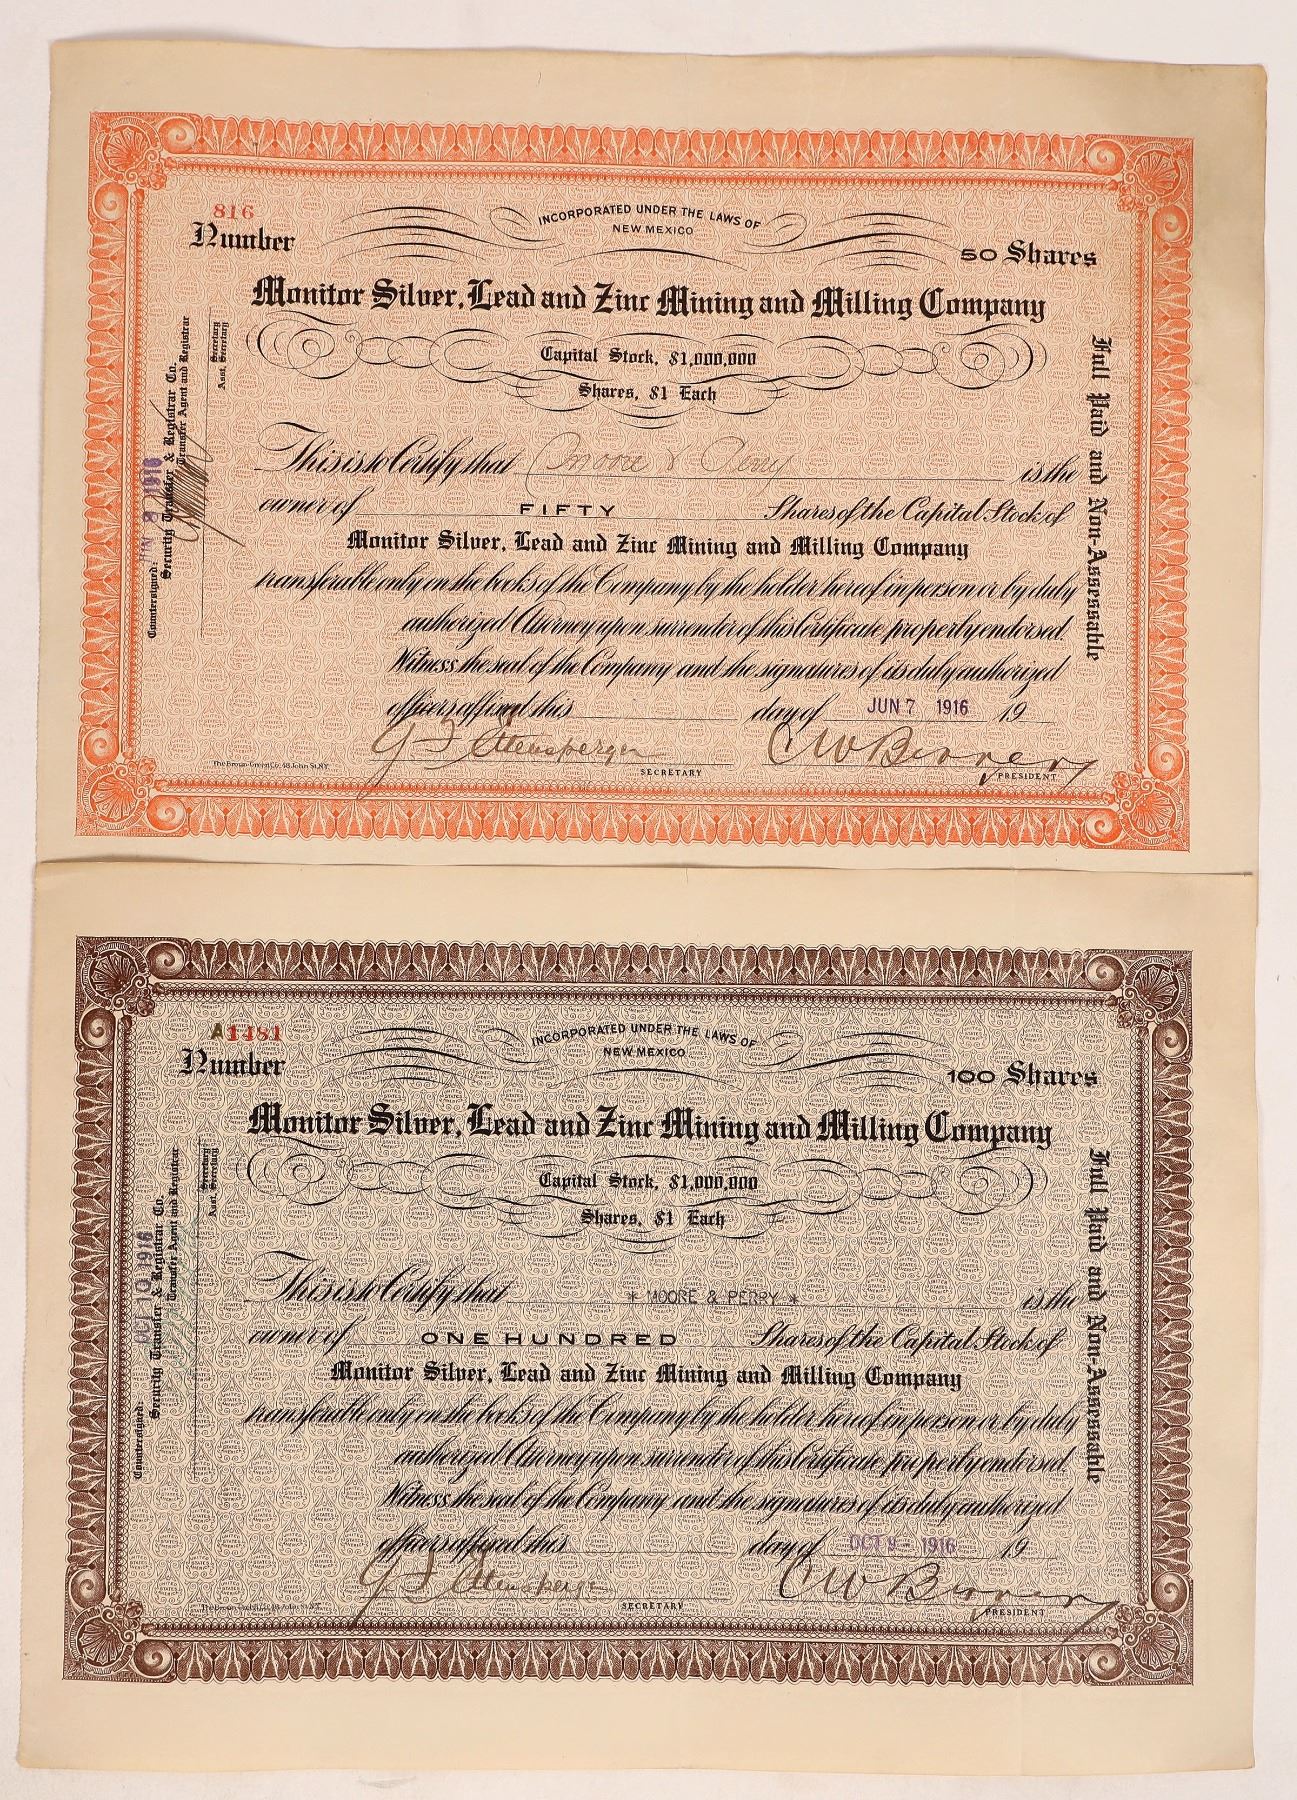 816
Number
INCORPORATED UNDER THE LAWS OF
NEW MEXICO
50 Shares
Monitor Silver, Lead and Zinc Mining and Milling Company
Capital Stock, $1,000,000
Shares, $1 Each
This is to Certify that Moore & Perry is the
owner of FIFTY Shares of the Capital Stock of
Monitor Silver, Lead and Zinc Mining and Milling Company
transferable only on the books of the Company by the holder hereof in person or by duly
authorized Attorney upon surrender of this Certificate properly endorsed.
Witness the seal of the Company and the signatures of its duly authorized
officers affixed this day of JUN 7 1916 19
SECRETARY
PRESIDENT
The Broun-Green Co. 48 John St. N.Y.
Countersigned: JUN 8 1916
Security Transfer & Registrar Co.
Transfer Agent and Registrar
Secretary
Asst. Secretary
Full Paid and Non-Assessable
A1481
Number
INCORPORATED UNDER THE LAWS OF
NEW MEXICO
100 Shares
Monitor Silver, Lead and Zinc Mining and Milling Company
Capital Stock, $1,000,000
Shares, $1 Each
This is to Certify that * MOORE & PERRY * is the
owner of ONE HUNDRED Shares of the Capital Stock of
Monitor Silver, Lead and Zinc Mining and Milling Company
transferable only on the books of the Company by the holder hereof in person or by duly
authorized Attorney upon surrender of this Certificate properly endorsed.
Witness the seal of the Company and the signatures of its duly authorized
officers affixed this day of OCT 9 - 1916 19
SECRETARY
PRESIDENT
The Broun-Green Co. 48 John St. N.Y.
Countersigned: OCT 10 1916
Security Transfer & Registrar Co.
Transfer Agent and Registrar
Secretary
Asst. Secretary
Full Paid and Non-Assessable